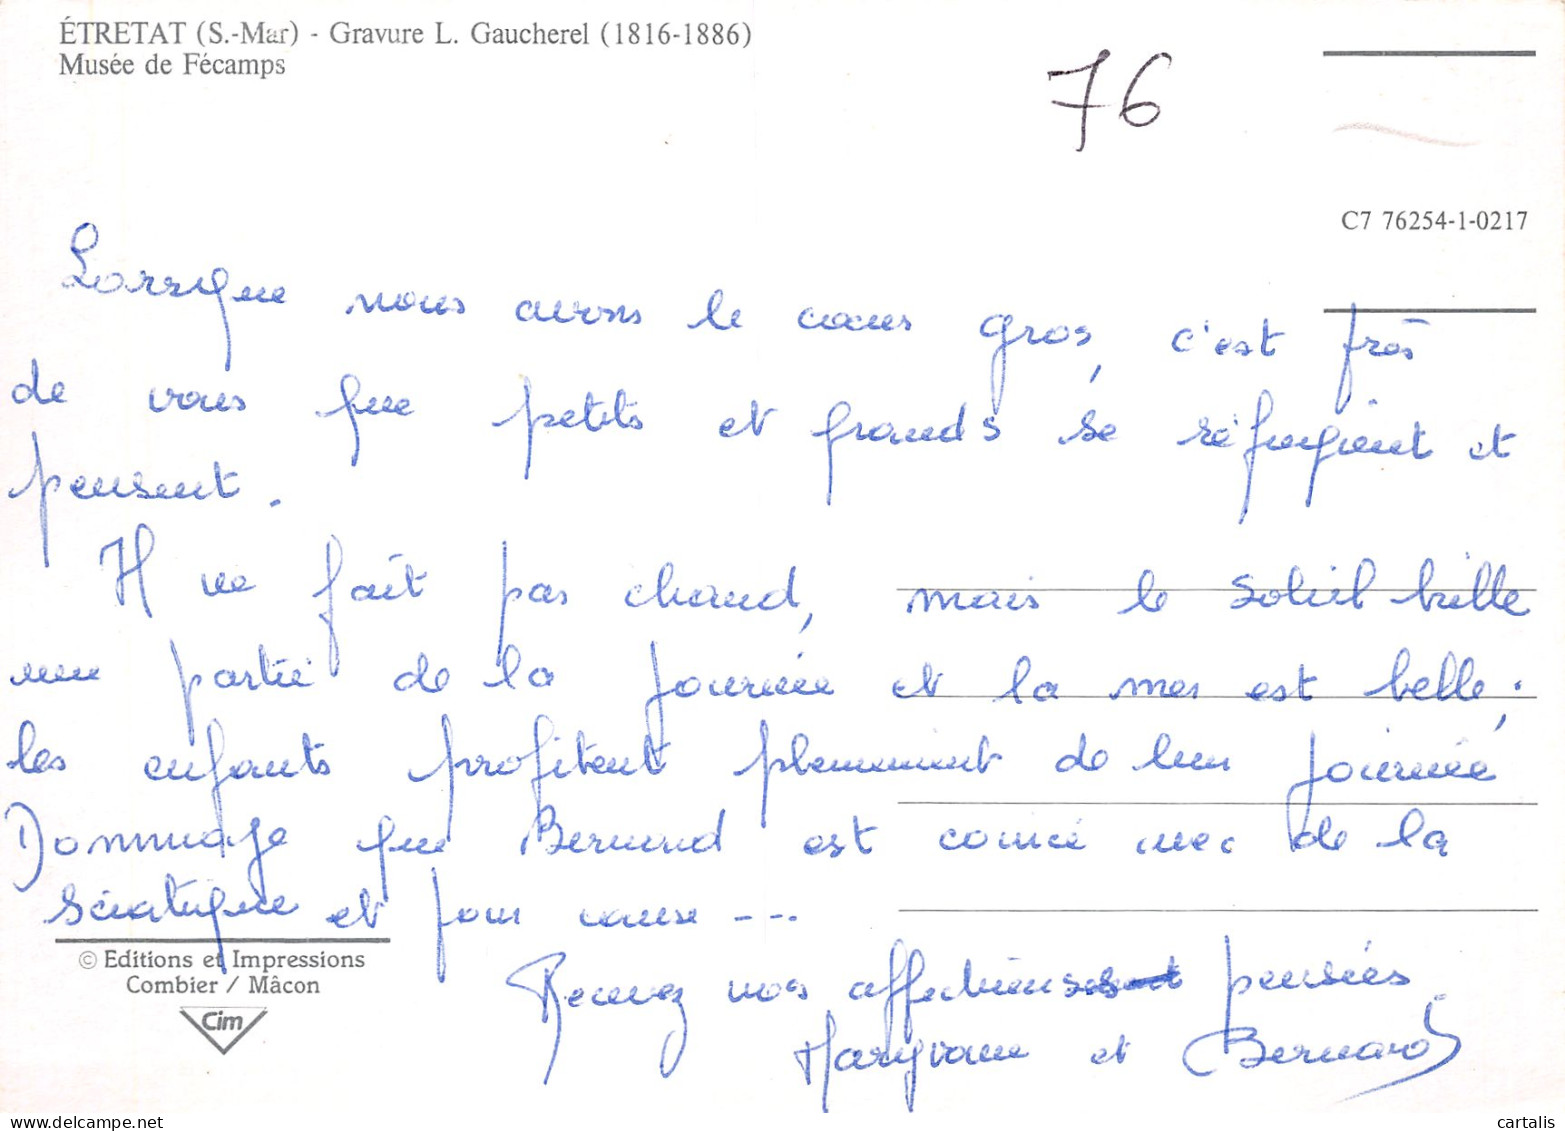 ÉTRETAT (S.-Mar) - Gravure L. Gaucherel (1816-1886)
Musée de Fécamps
76
C7 76254-1-0217
Lorsque nous avons le cœur gros, c'est près
de vous que petits et grands se réfugient et
pensent.
Il ne fait pas chaud, mais le soleil brille
une partie de la journée et la mer est belle;
les enfants profitent pleinement de leur journée
Dommage que Bernard est coincé avec de la
sciatique et pour cause ---
Recevez nos affectueuses pensées.
Maryvonne et Bernard
© Editions et Impressions
Combier / Mâcon
Cim
delcampe.net
cartalis